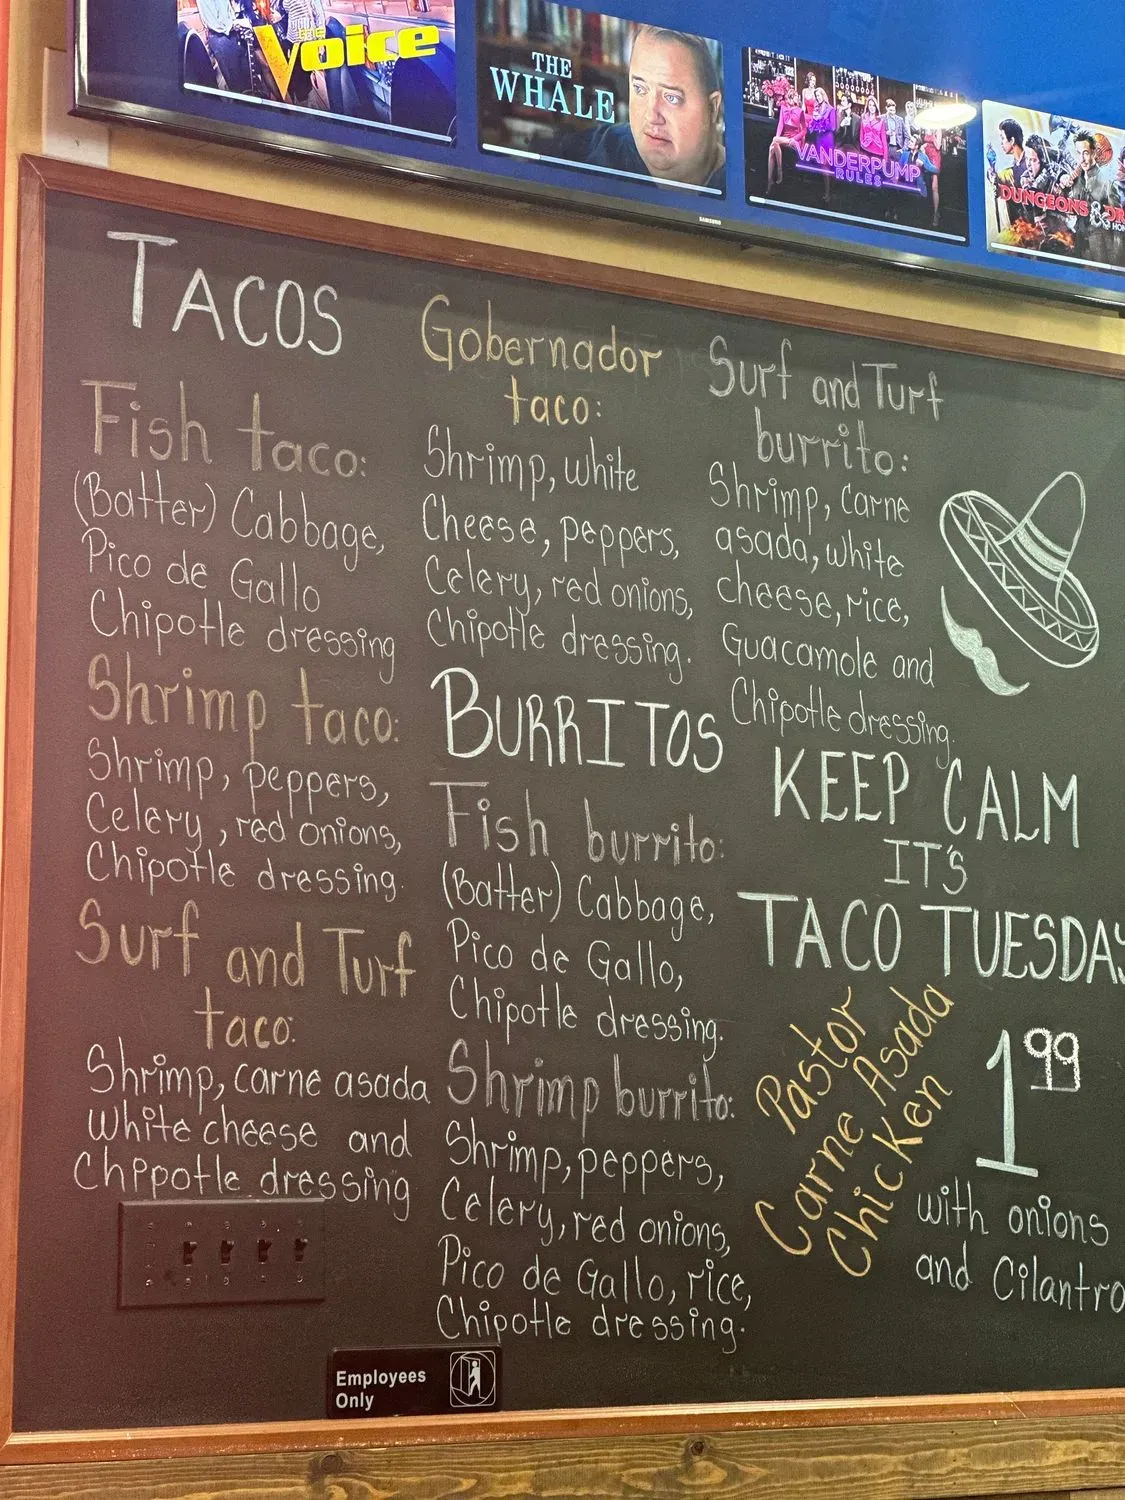 THE
Voice
THE
WHALE
VANDERPUMP
RULES
DUNGEONS &
SAMSUNG
TACOS
Fish taco:
(Batter) Cabbage,
Pico de Gallo
Chipotle dressing
Shrimp taco:
Shrimp, peppers,
Celery, red onions,
Chipotle dressing.
Surf and Turf
taco:
Shrimp, carne asada
white cheese and
Chipotle dressing
Gobernador
taco:
Shrimp, white
Cheese, peppers,
Celery, red onions,
Chipotle dressing.
BURRITOS
Fish burrito:
(Batter) Cabbage,
Pico de Gallo,
Chipotle dressing.
Shrimp burrito:
Shrimp, peppers,
Celery, red onions,
Pico de Gallo, rice,
Chipotle dressing.
Surf and Turf
burrito:
Shrimp, carne
asada, white
cheese, rice,
Guacamole and
Chipotle dressing.
KEEP CALM
IT'S
TACO TUESDAY
Pastor
Carne Asada
Chicken
1 99
with onions
and Cilantro
Employees
Only